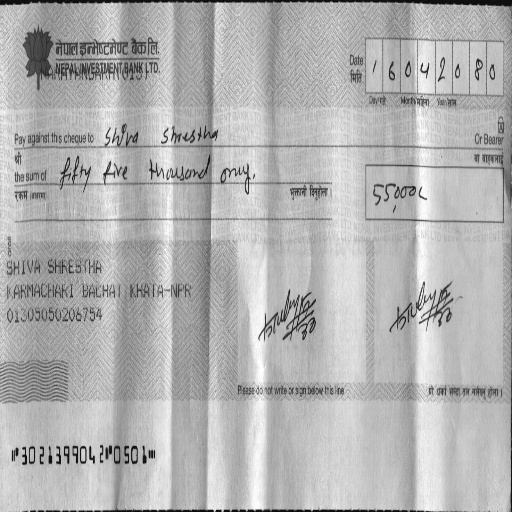 नेपाल इन्भेष्टमेण्ट बैंक लि.
NEPAL INVESTMENT BANK LTD.
Date
मिति
1 6 0 4 2 0 8 0
Day/गते Month/महिना Year/साल
Pay against this cheque to Shiva Shrestha Or Bearer
श्री वा वाहकलाई
the sum of fifty five thousand only.
रकम भुक्तानी दिनुहोला ।
55,000/-
SHIVA SHRESTHA
KARMACHARI BACHAT KHATA-NPR
01305050206754
Please do not write or sign below this line
⑈30213990421⑈0501⑈